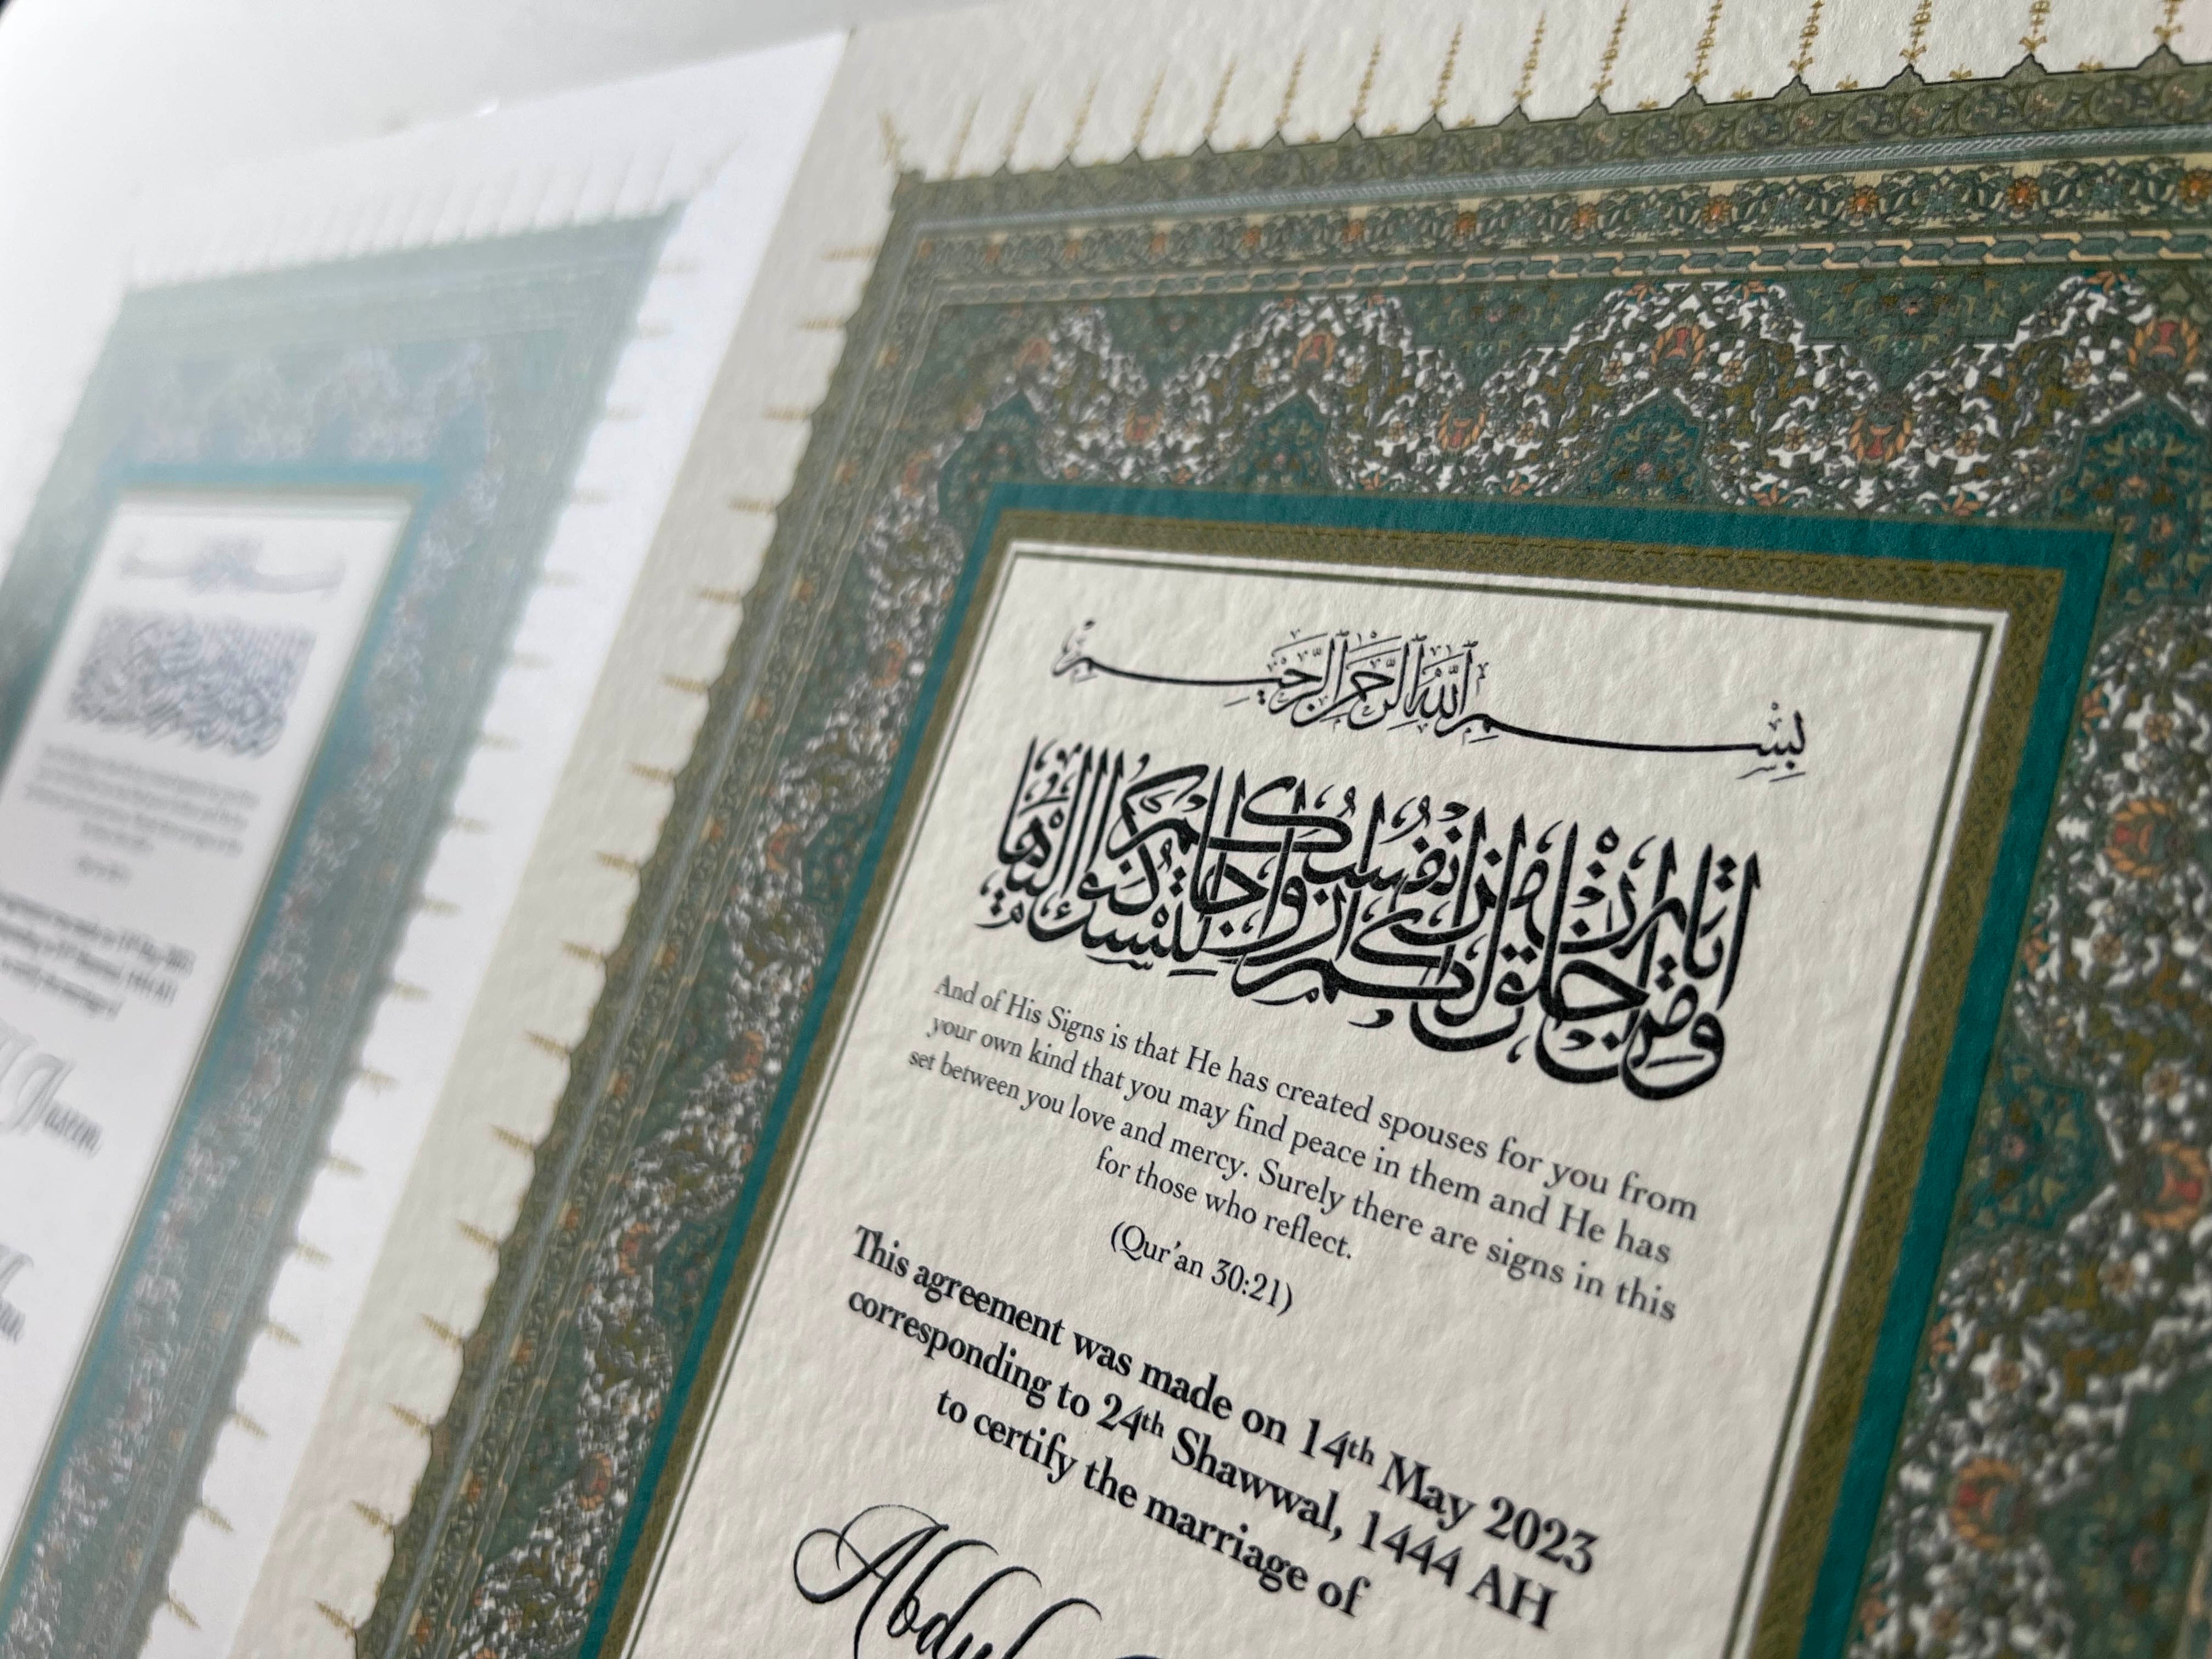 بِسْمِ اللَّهِ الرَّحْمَٰنِ الرَّحِيمِ
وَمِنْ آيَاتِهِ أَنْ خَلَقَ لَكُم مِّنْ أَنفُسِكُمْ أَزْوَاجًا لِّتَسْكُنُوا إِلَيْهَا
And of His Signs is that He has created spouses for you from
your own kind that you may find peace in them and He has
set between you love and mercy. Surely there are signs in this
for those who reflect.
(Qur'an 30:21)
This agreement was made on 14th May 2023
corresponding to 24th Shawwal, 1444 AH
to certify the marriage of
Abdul